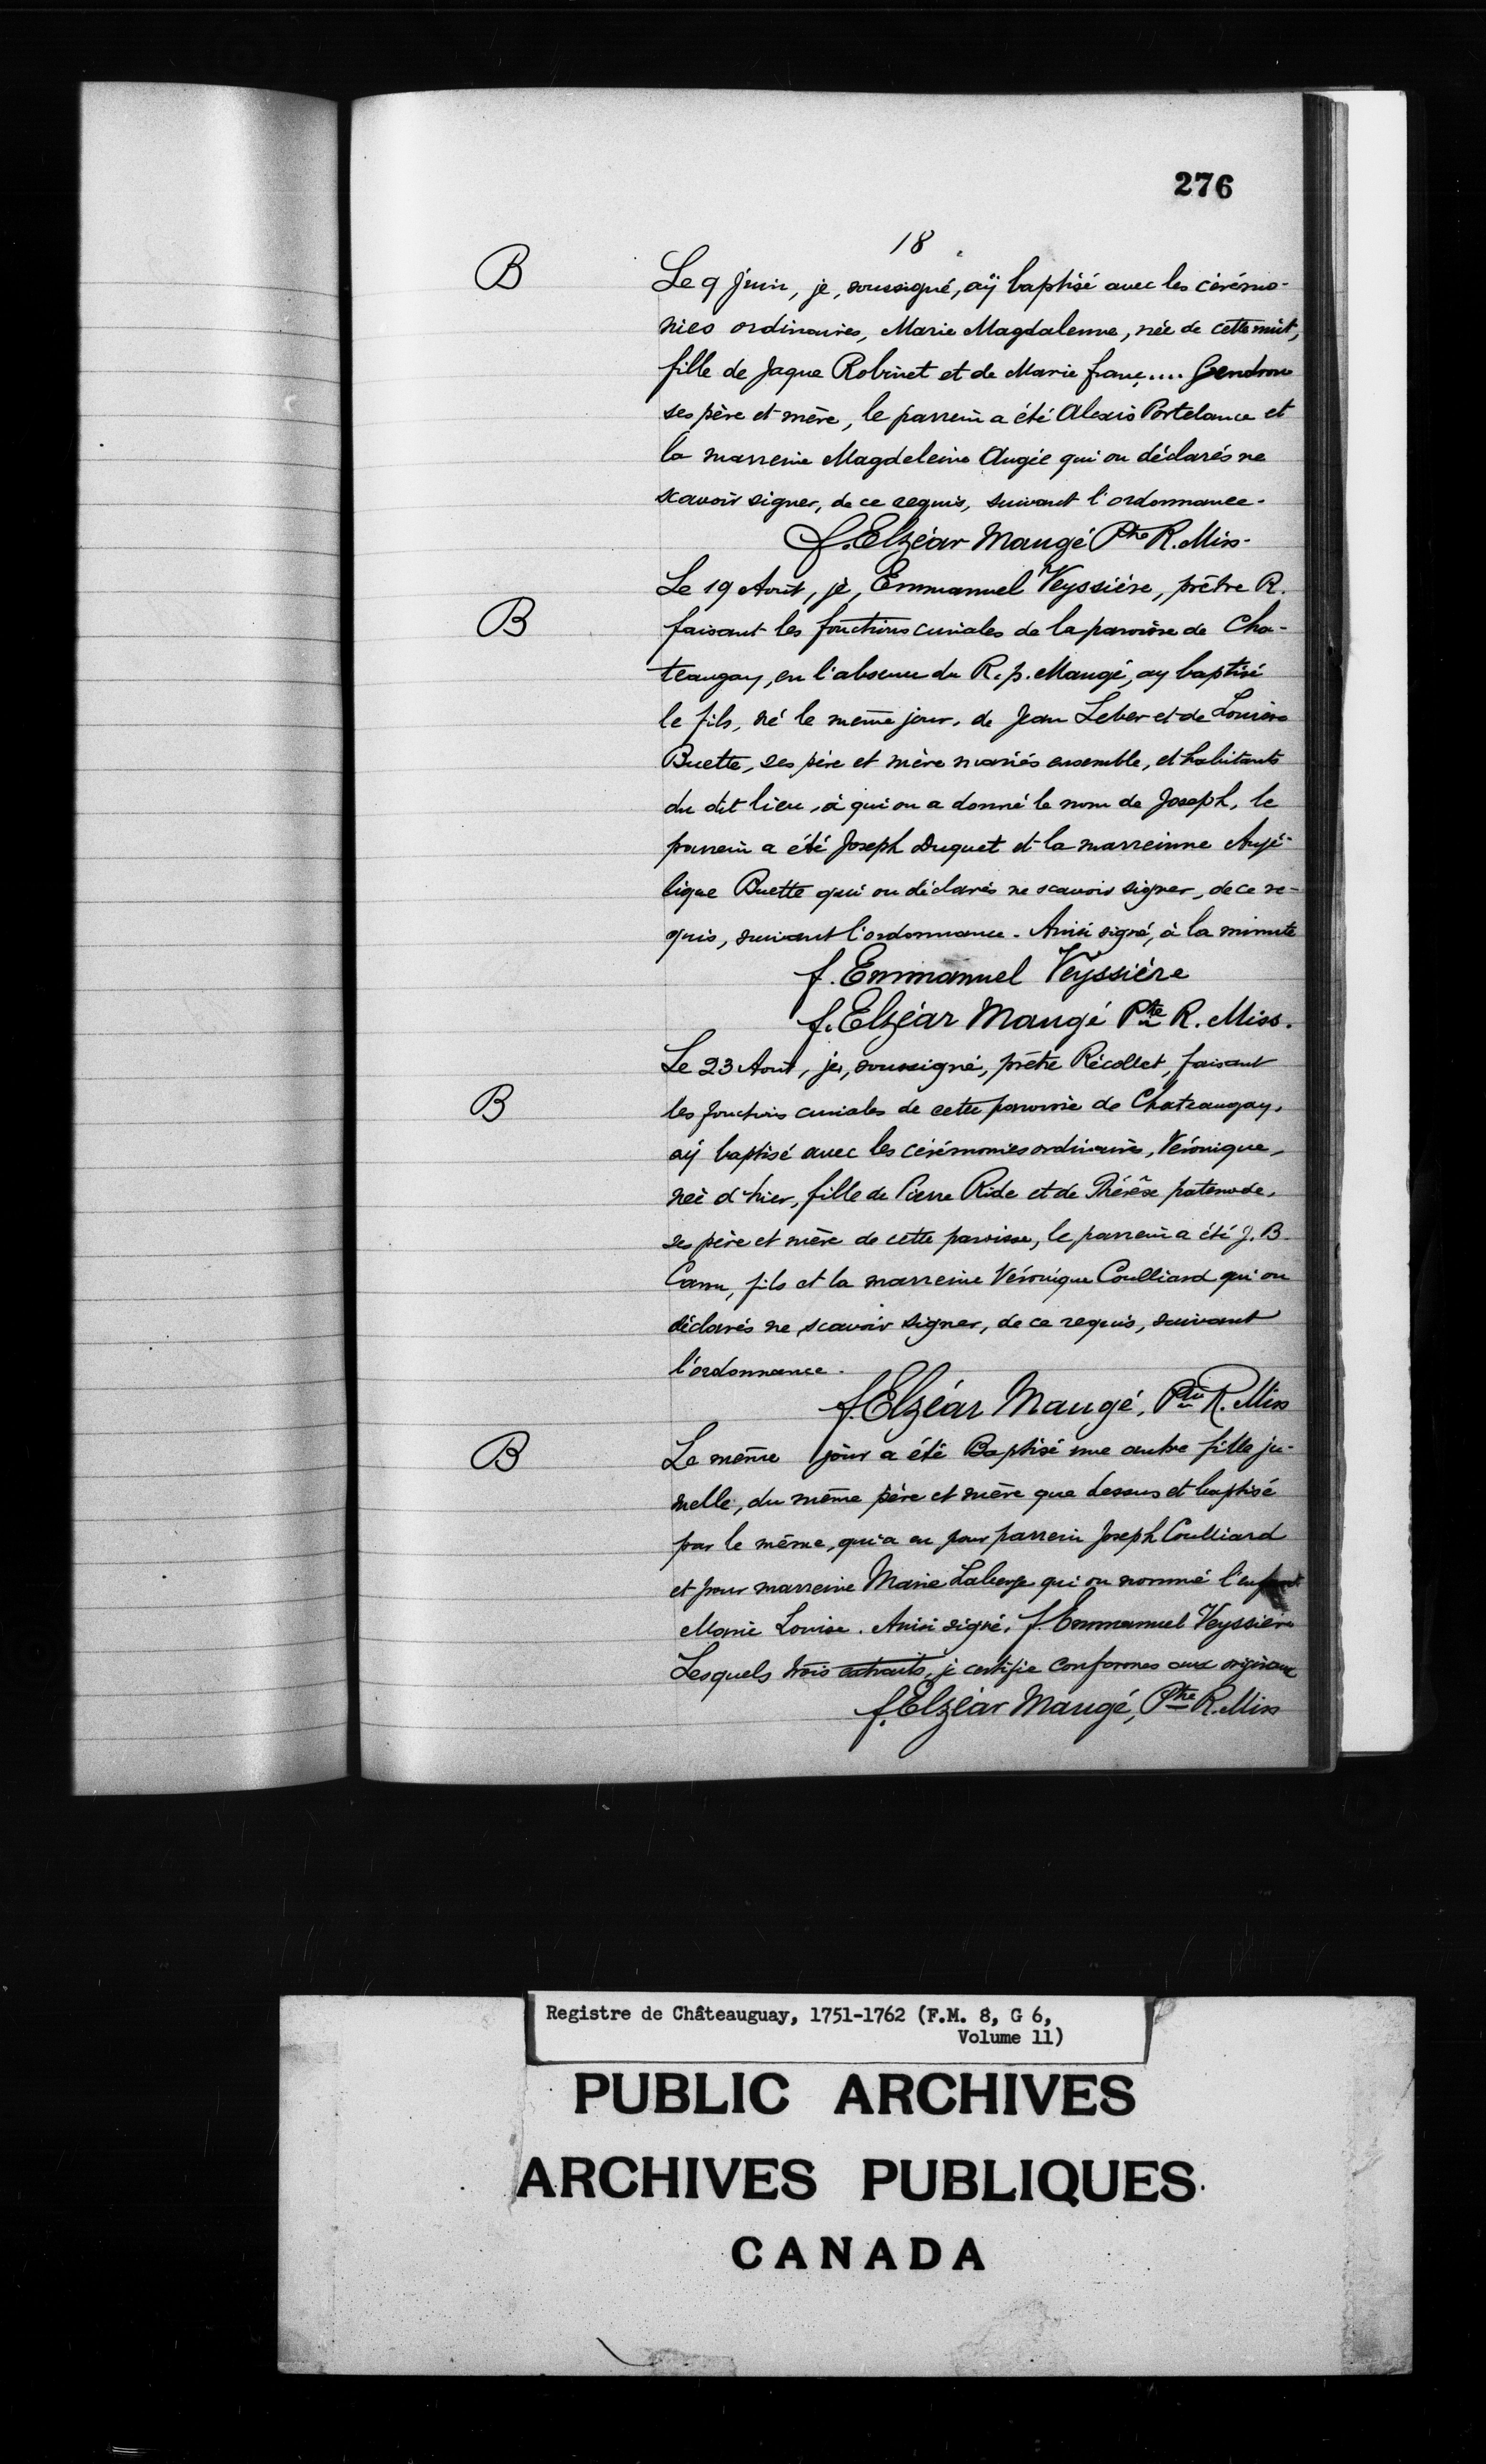 276
18
B
Le 9 juin, je, soussigné, aÿ baptisé avec les cérémo-
nies ordinaires, Marie Magdalenne, née de cette nuit,
fille de Jaque Robinet et de Marie franç.... Gendron
ses père et mère, le parrein a été Alexis Portelance et
la marreine Magdeleine Augée qui on déclarés ne
scavoir signer, de ce requis, suivant l'ordonnance.
f. Elzéar Maugé Ptre R. Miss.
Le 19 Août, je, Emmanuel Veyssière, prêtre R.
B
faisant les fonctions curiales de la paroisse de Cha-
teaugay, en l'absence du R. p. Maugé, ay baptisé
le fils, né le même jour, de Jean Leber et de Louise
Buette, ses père et mère mariés ensemble, et habitants
du dit lieu, à qui on a donné le nom de Joseph, le
parrein a été Joseph Duquet et la marreinne Angé-
lique Buette qui on déclarés ne scavoir signer, de ce re-
quis, suivant l'ordonnance. Ainsi signé, à la minute
f. Emmanuel Veyssière
f. Elzéar Maugé Ptre R. Miss.
Le 23 Aout, je, soussigné, prêtre Récollet, faisant
B
les fonctions curiales de cette paroisse de Chateaugay,
aÿ baptisé avec les cérémonies ordinaires, Véronique,
née d'hier, fille de Pierre Ride et de Thérèse patenode,
ses père et mère de cette paroisse, le parrein a été J. B.
fils et la marreine Véronique Coulliard qui on
déclarés ne scavoir signer, de ce requis, suivant
l'ordonnance.
f. Elzéar Maugé, Ptre R. Miss
B
Le même jour a été Baptisé une autre fille ju-
melle, du même père et mère que dessus et baptisé
par le même, qui a eu pour parrein Joseph Coulliard
et pour marreine Marie Laberge qui on nommé l'enfant
Marie Louise. Ainsi signé, f. Emmanuel Veyssière
Lesquels trois extraits, je certifie conformes aux originaux
f. Elzéar Maugé, Ptre R. Miss
Registre de Châteauguay, 1751-1762 (F.M. 8, G 6,
Volume 11)
PUBLIC ARCHIVES
ARCHIVES PUBLIQUES
CANADA